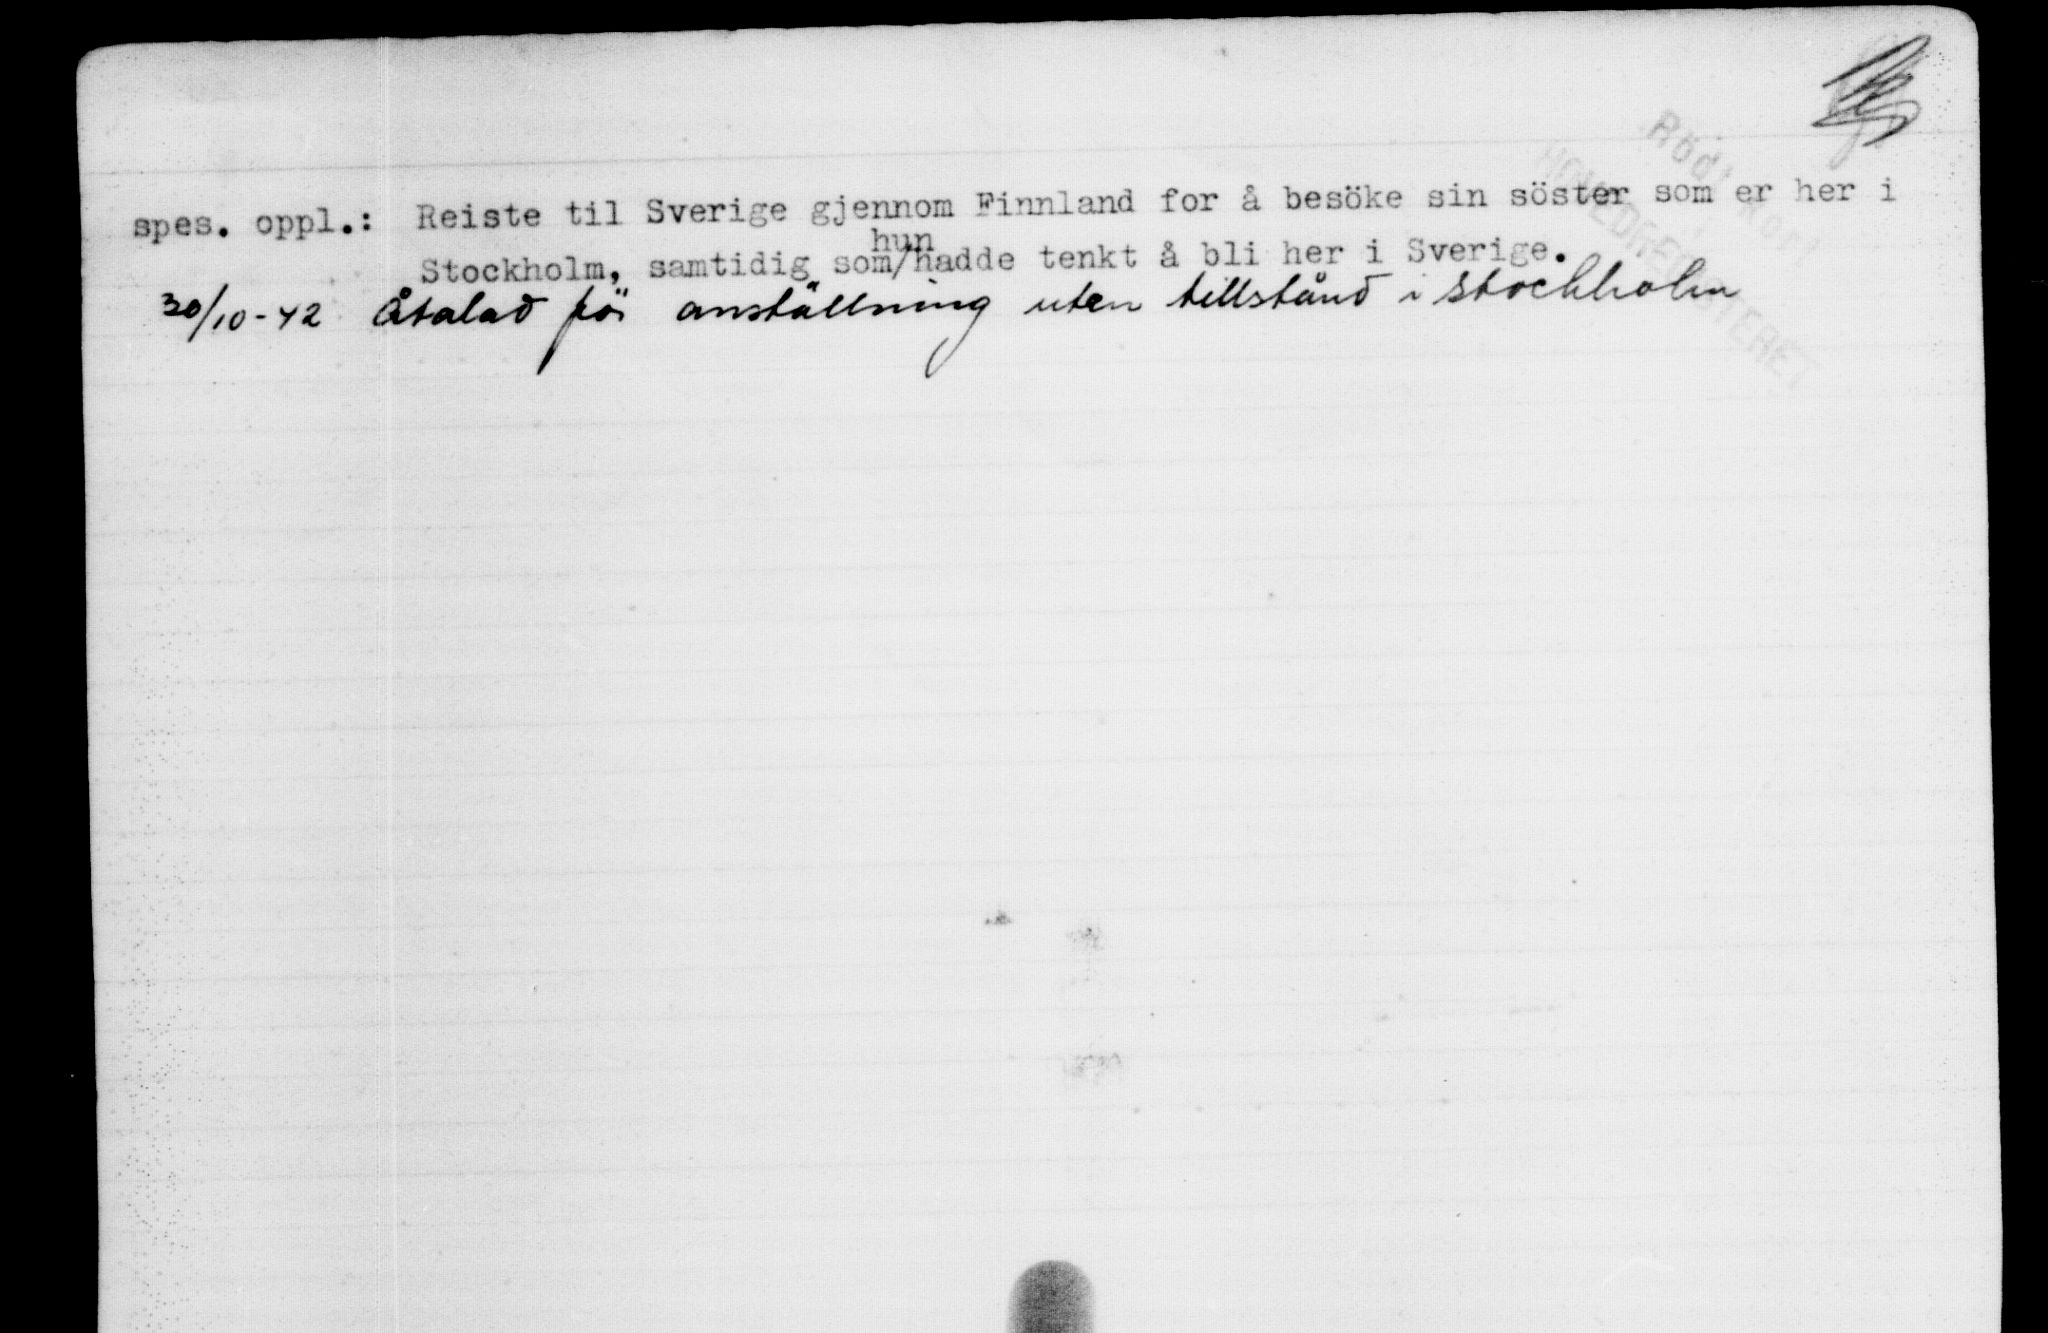 Rödt kort
HOVEDREGISTERET
spes. oppl.: Reiste til Sverige gjennom Finnland for å besöke sin söster som er her i
hun
Stockholm, samtidig som/hadde tenkt å bli her i Sverige.
30/10-42 Åtalad för anställning uten tillstånd i Stockholm